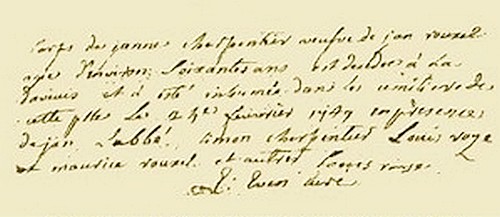 corps de janne cherpentier veufve de jan rouxel
agee d'environ soixantes ans est decedee à La
et à esté inhumée dans les cimitiere de
cette p^sse Le 24^e 1747 en presence
de jan Labbé simon cherpentier Louis roge
et maurice rouxel et autres Louis rouge